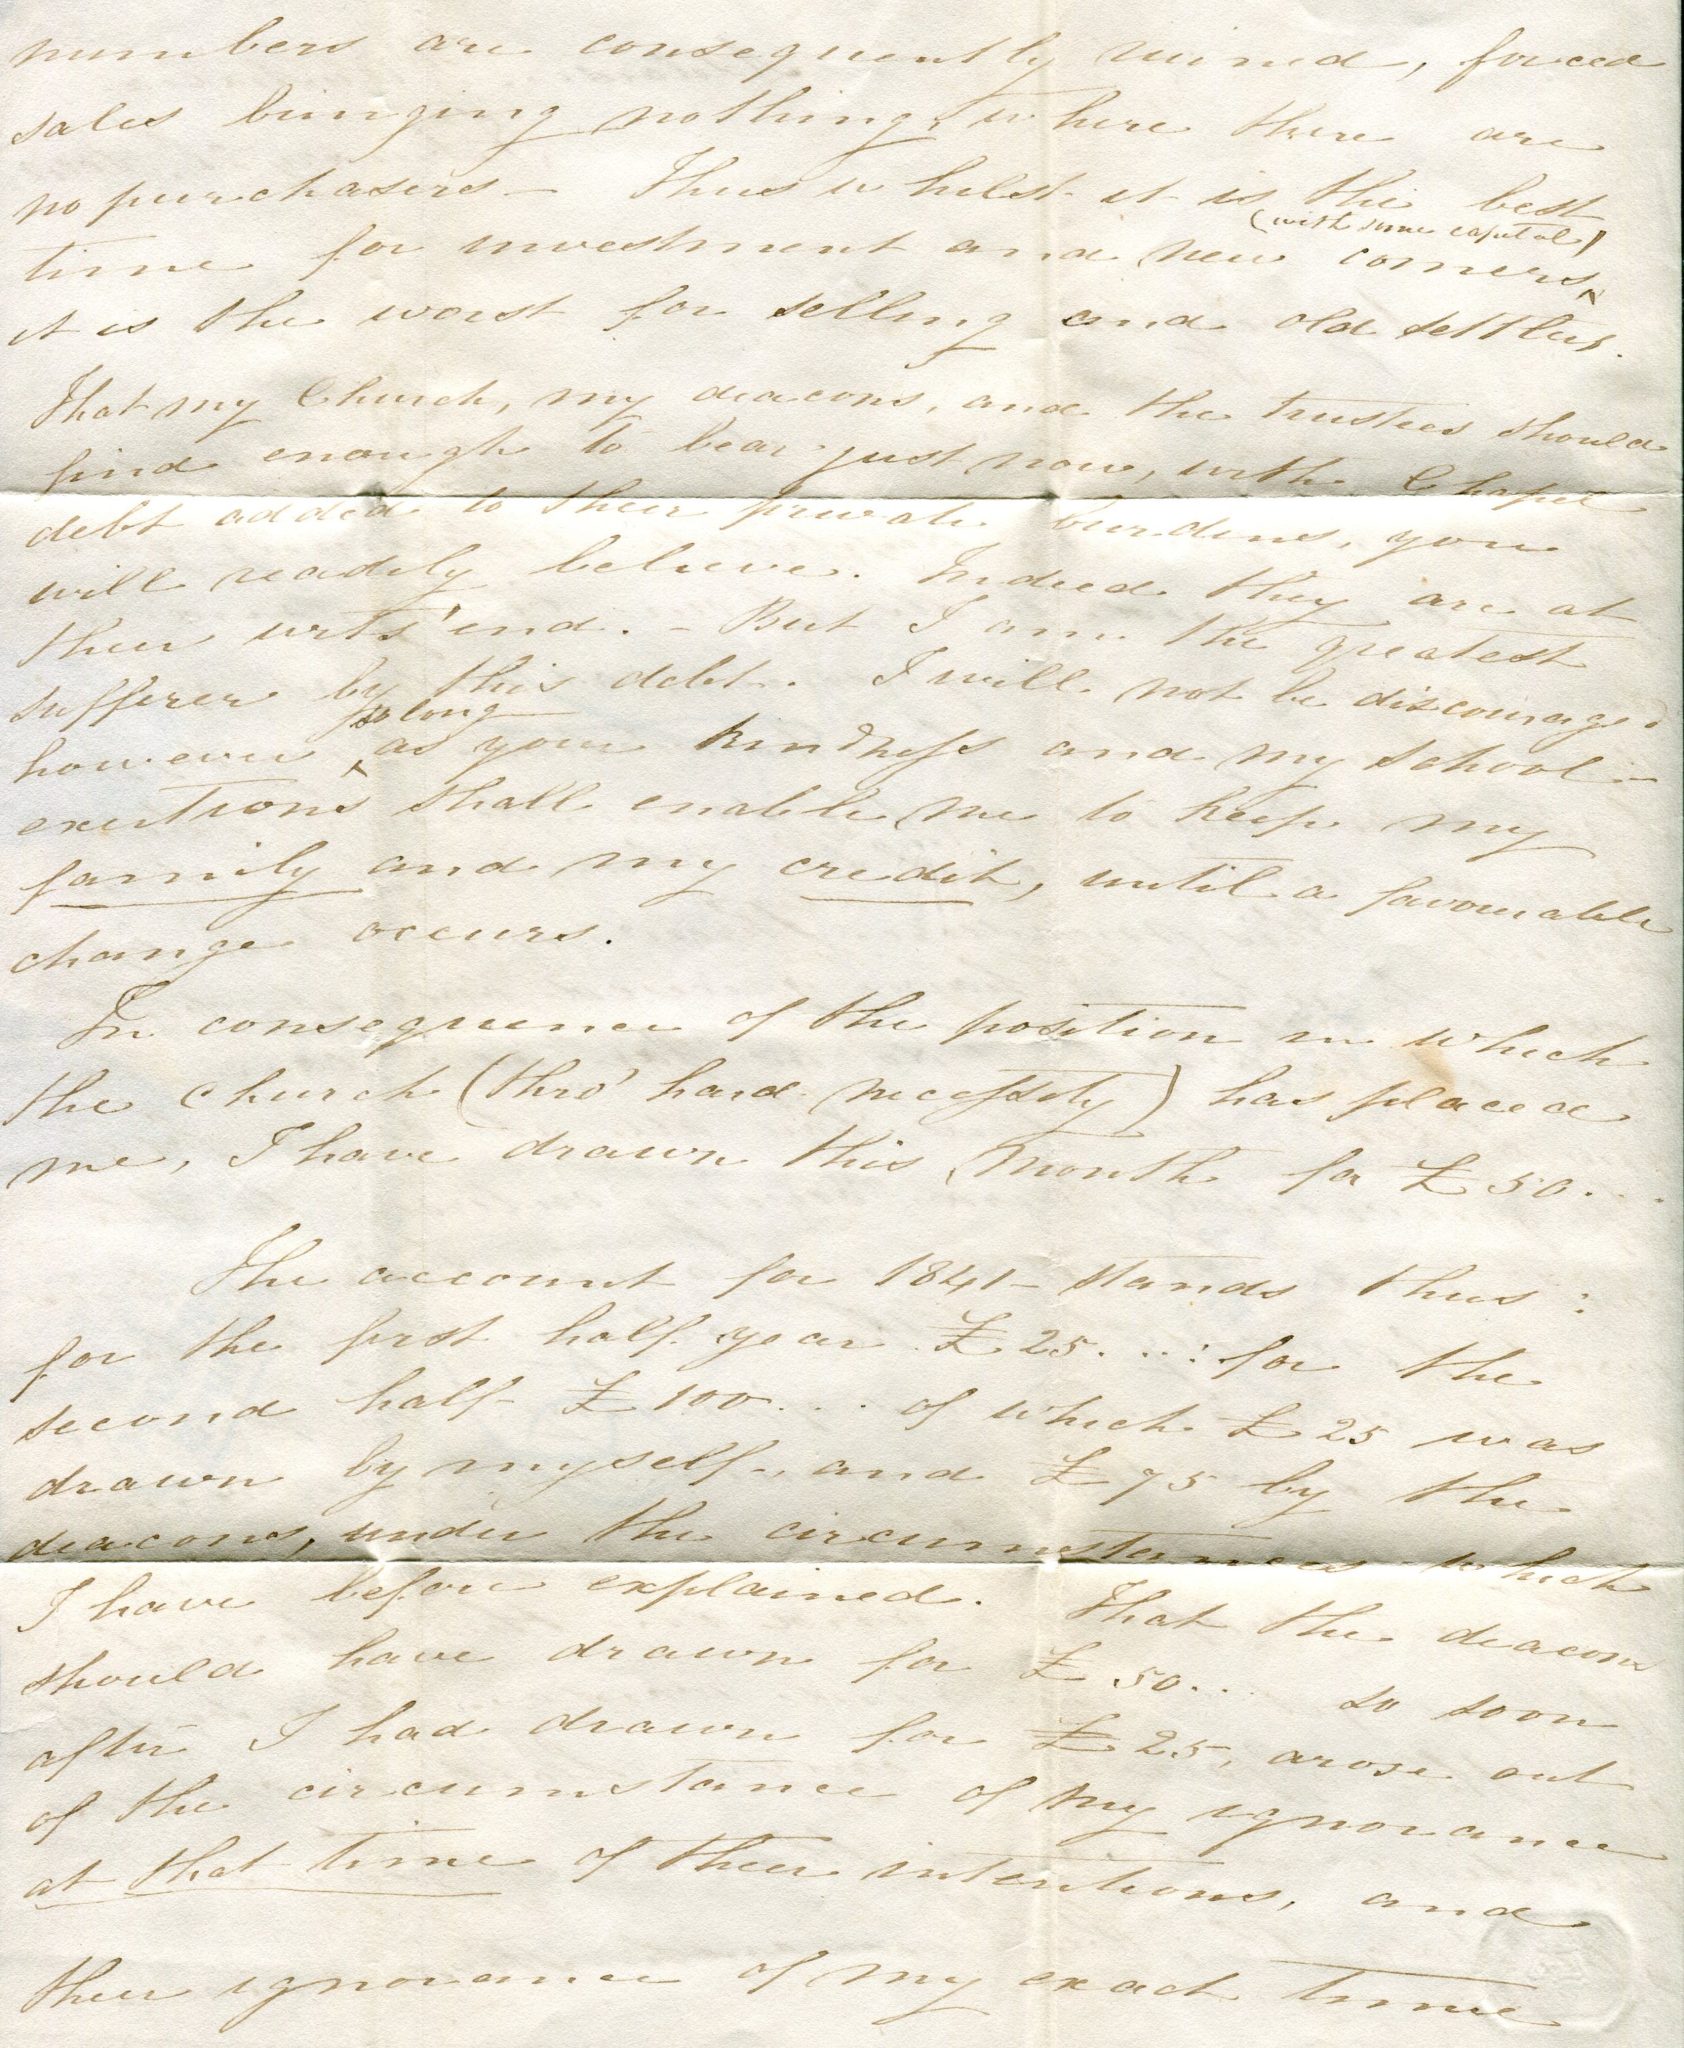 numbers are consequently ruined, forced
sales bringing nothing, where there are
no purchasers — Thus whilst it is the best
time for investment and new comers (with some capital)
it is the worst for selling and old settlers.
That my Church, my deacons, and the trustees should
find enough to bear just now, with Chapel
debt added to their private burdens, you
will readily believe. Indeed they are at
their wits' end. – But I am the greatest
sufferer by this debt. I will not be discouraged
however so long as your kindness and my school-
exertions shall enable me to keep my
family and my credit, until a favourable
change occurs.
In consequence of the position in which
the church (thro' hard necessity) has placed
me, I have drawn this month for £50...
The account for 1841 – stands thus :
for the first half year £25...: for the
second half £100... of which £25 was
drawn by myself, and £75 by the
deacons, under the circumstances which
I have before explained. That the deacons
should have drawn for £50... so soon
after I had drawn for £25, arose out
of the circumstance of my ignorance
at that time of their intentions, and
their ignorance of my exact time